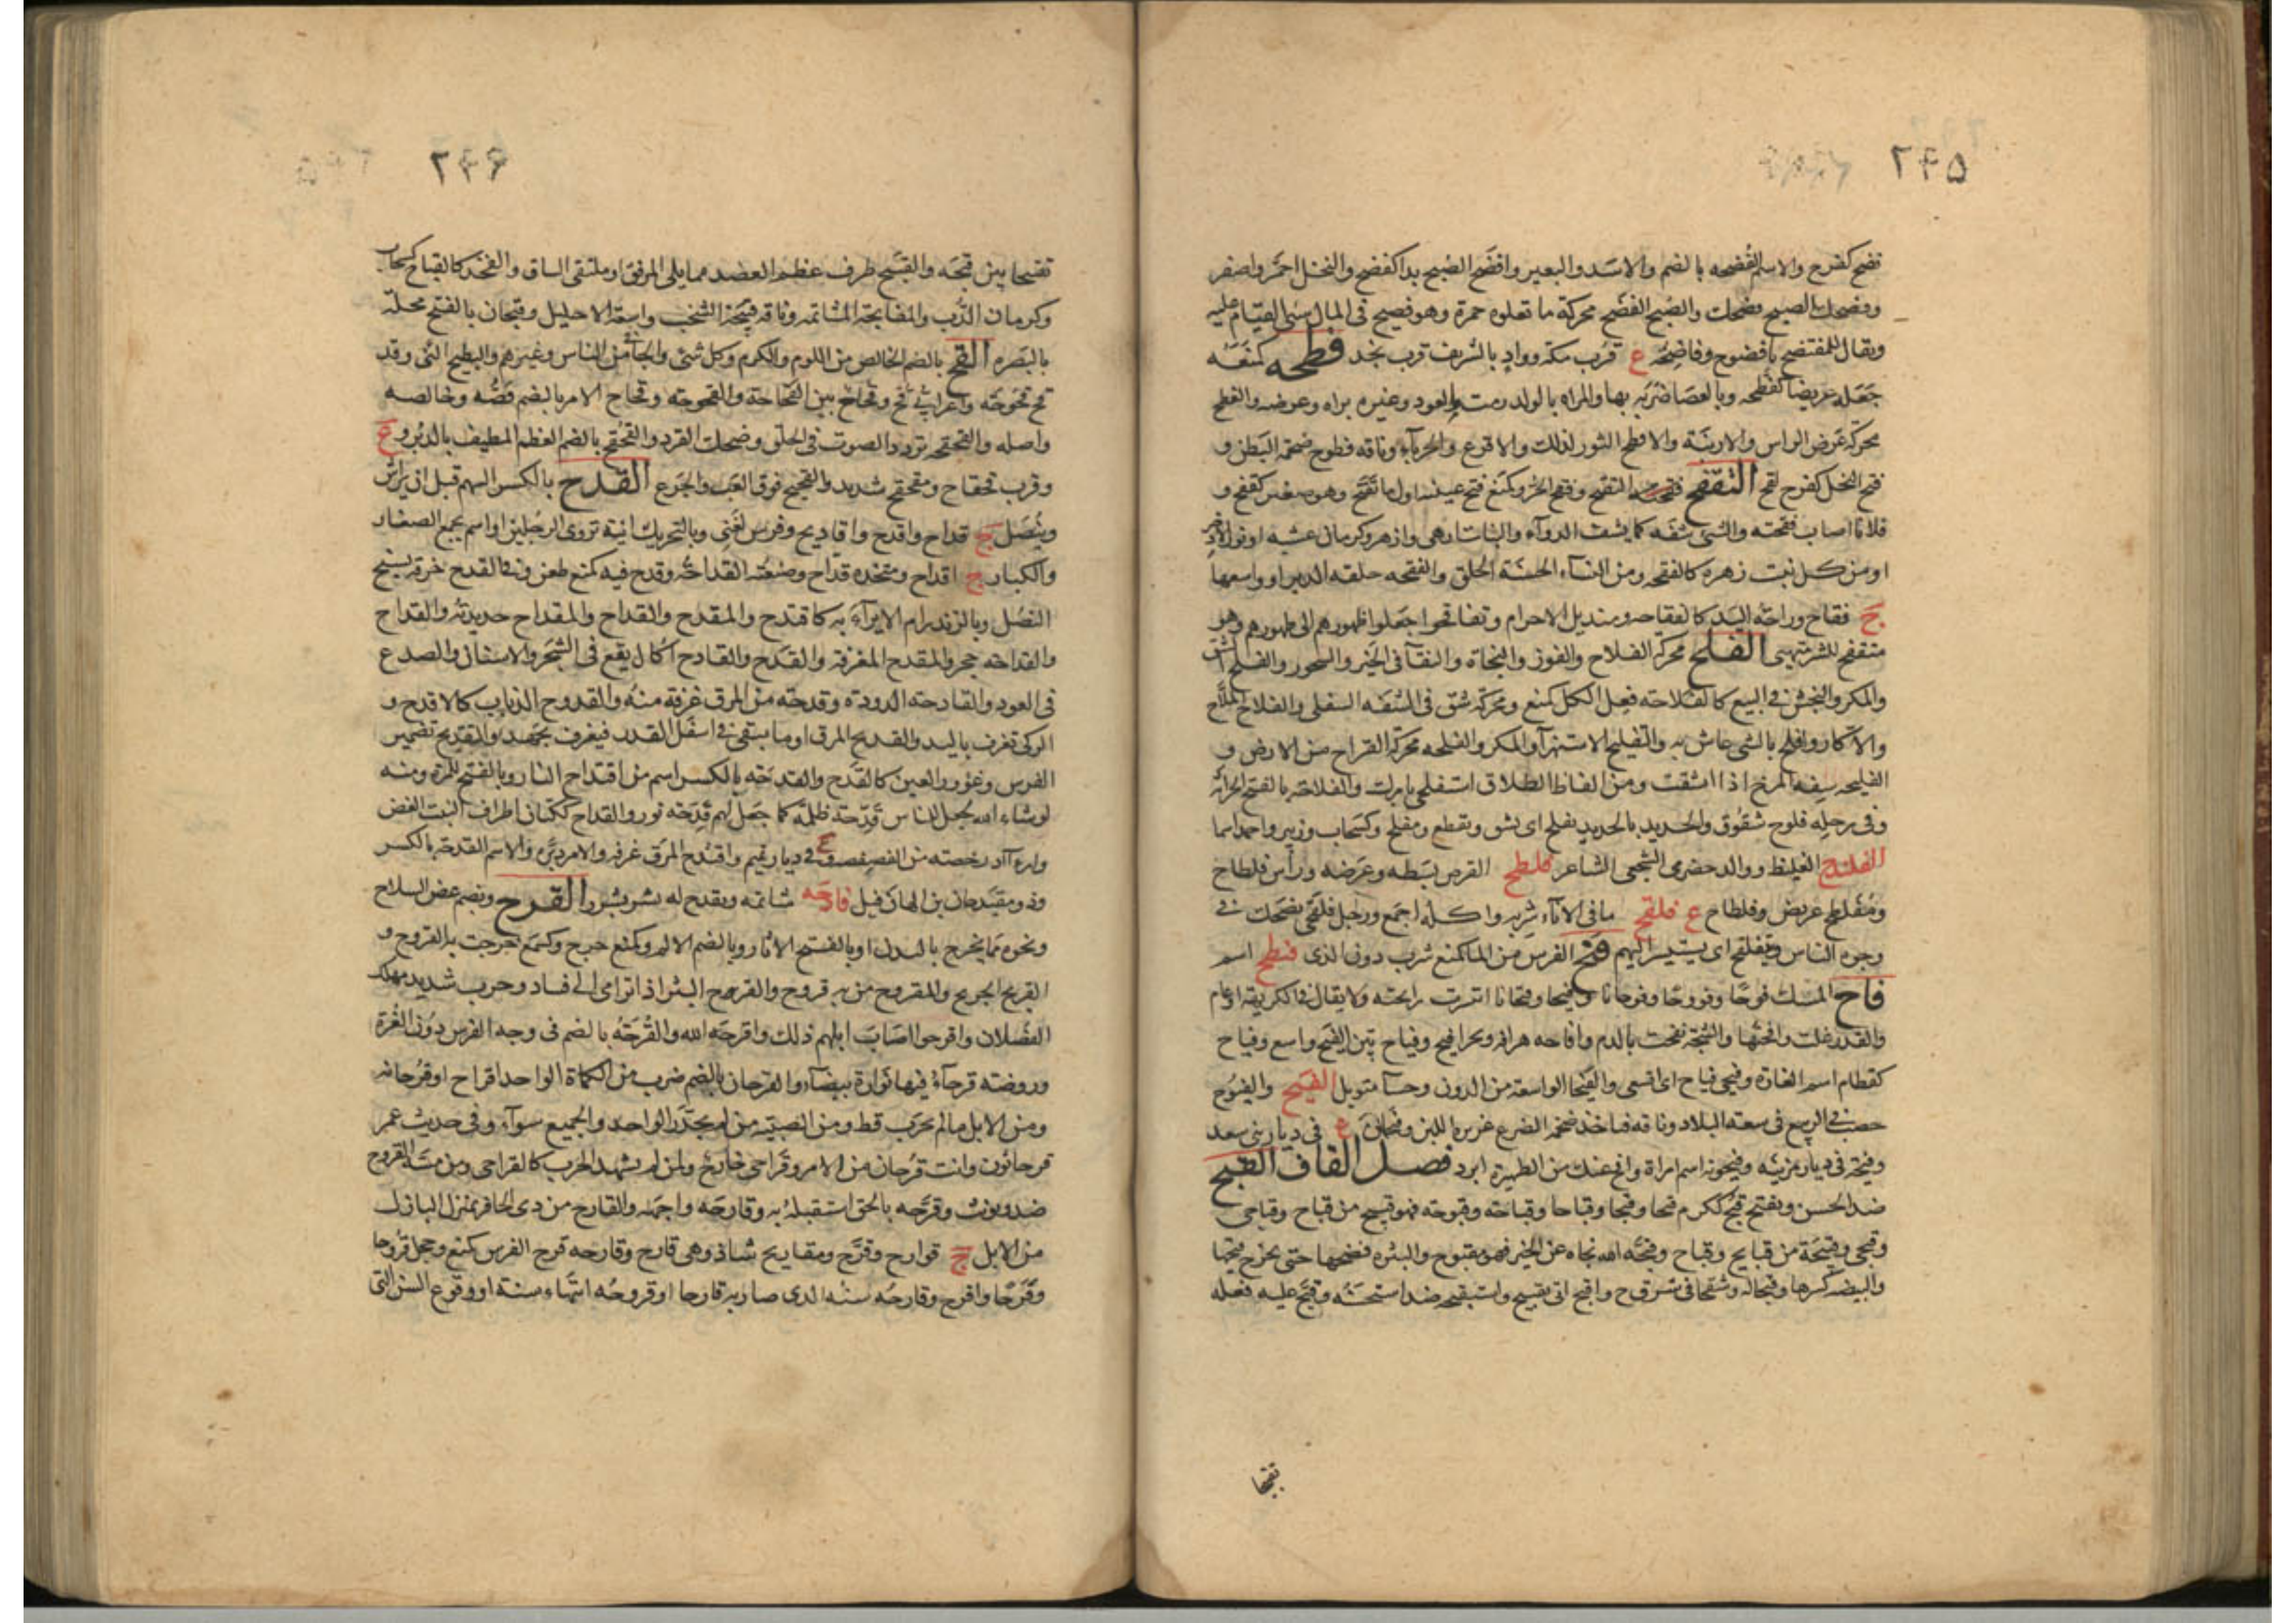 ۲۴۵
فضح كفرح والاسم الفضحه بالضم والاسد والبعير وافضح الصبح بدا كفضح والنخل احمر واصفر
وفضحك الصبح فضحك والصبح الفضح محركة ما تعلوه حمرة وهو فصيح فى المال سئ القيام عليه
ويقال للمفتضح يا فضوح وفاضحة ع قرب مكة وواد بالشريف قرب نجد فطحه كمنعه
جعله عريضا كفطحه وبالعصا ضربه بها والمراه بالولد رمت والعود وغيره براه وعرضه والفطح
محركة عرض الراس والارنبة والافطح الثور لذلك والاقرع والحرباء وناقه فطوح ضخمة البطن و
فتح النخل كفرح لقح التفقح التفتح وفقح الجرو كمنع فتح عينيه اول ما تفتح وهو صغير كفقح و
فلانا اصاب فقحته والشئ سفه كما يسف الدواء والنبات ازهى وازهر وكرمان عشبه او نور الاذخر
او من كل نبت زهره كالفقحه ومن النساء الحسنة الخلق والفقحه حلقه الدبر او واسعها
ج فقاح وراحة اليد كالفقاحه ومنديل الاحرام وتفاقحوا جعلوا ظهورهم الى ظهورهم وهو
متفقح للشر متهيئ الفلح محركة الفلاح والفوز والنجاة والبقاء فى الخير والسحور والفلح الشق
والمكر والنجش فى البيع كالفلاحة فعل الكل كمنع ومحركة شق فى الشفه السفلى والفلاح الملاح
والاكار وافلح بالشئ عاش به والتفليح الاستهزاء والمكر والفلحه محركة القراح من الارض و
الفليحه سنفه المرخ اذا انشقت ومن الفاظ الطلاق استفلحى بامرك والفلاحة بالفتح الحراثة
وفى رجله فلوح شقوق والحديد بالحديد يفلح اى يشق ويقطع ومفلح وكسحاب وزبير واحمد اسما
الغليظ ووالد حضرمى الشجعى الشاعر فلطح القرص بسطه وعرضه وراس فلطاح
ومفلطح عريض وفلطاح ع فلقح ما فى الاناء شربه واكله اجمع ورجل فلقحى يضحك فى
وجوه الناس ويتفلقح اى يستبشر اليهم فنح الفرس من الما كمنع شرب دون الرى فنطح اسم
فاح المسك فوحا وفووحا وفوحانا وفيحا وفيحانا انتشرت رايحته ولا يقال فى الكريهة او عام
والقدر غلت وافحتها والشجة نفحت بالدم وافاحه هراقه وبحر افيح وفياح بين الفيح واسع وفياح
كقطام اسم الغارة وفيحى فياح اى اتسعى والفيحا الواسعة من الدور وحسا متوبل الفيح والفيوح
خصب الربيع فى سعة البلاد وناقه فياحه ضخمه الضرع غزيره اللبن وفيحان ع فى ديار بنى سعد
وفيحة فى ديار مزينه وفيحونه اسم امراة وافح عنك من الظهيرة ابرد فصل القاف القبح
ضد الحسن ويفتح قبح ككرم قبحا وقبحا وقباحا وقباحة وقبوحة فهو قبيح من قباح وقباحى
وقبحى وقبيحة من قبايح وقباح وقبحه الله نجاه عن الخير فهو مقبوح والبثره فضخها حتى يخرج قيحها
والبيضه كسرها وقبحا له وشقحا فى ش ق ح واقبح اتى بقبيح واستقبحه ضد استحسنه وقبح عليه فعله
تقبيحا
۲۴۶
تقبيحا بين قبحه والقبيح طرف عظم العضد مما يلى المرفق او ملتقى الساق والفخذ كالقباح كسحاب
وكرمان الدب والمقابحة المشاتمه وناقه قبيحة الشخب واسعة الاحليل وقبحان بالفتح محلة
بالبصره القح بالضم الخالص من اللوم والكرم وكل شئ والجافى من الناس وغيرهم والبطيخ النئ وقد
قح قحوحة واعرابى قح وقحاح بين القحاحة والقحوحة وقحاح الامر بالضم فصه وخالصه
واصله والقحقحه تردد الصوت فى الحلق وضحك القرد والقحقح بالضم العظم المطيف بالدبر و ع
وقرب قحقاح ومقحقح شديد والقحيح فوق العب والجرع القدح بالكسر السهم قبل ان يراش
وينصل ج قداح واقدح واقاديح وفرس لغنى وبالتحريك انية تروى الرجلين او اسم يجمع الصغار
والكبار ج اقداح ومتخذه قداح وصنعته القداحة وقدح فيه كمنع طعن وفى القدح خرقه بسنخ
النصل وبالزند رام الايراء به كاقتدح والمقدح والقداح والمقداح حديدته والقداح
والقداحه حجره والمقدح المغرفة والقدح والقادح اكال يقع فى الشجر والاسنان والصدع
فى العود والقادحة الدودة وقدحة من المرق غرفة منه والقدوح الذباب كالاقدح و
الركى تغرف باليد والقديح المرق او ما يبقى فى اسفل القدر فيغرف بجهد والتقديح تضمير
الفرس وغؤور العين كالقدح والقدحة بالكسر اسم من اقتداح النار وبالفتح للمرة ومنه
لو شاء الله لجعل للناس قدحة ظلمة كما جعل لهم قدحة نور والقداح ككتان اطراف النبت الغض
وارءاد رخصته من الفصفصة و ع فى ديار تميم واقتدح المرق غرفه والامر دبره والاسم القدحة بالكسر
وذو مقيدحان بن الهان قيل قادحه شاتمه وتقدح له بشر القرح ويضم عض السلاح
ونحوه مما يخرج بالبدن او بالفتح الاثار وبالضم الالم وكمنع جرح وكسمع خرجت به القروح و
القريح الجريح والمقروح من به قروح والقرح البثر اذا ترامى الى فساد وجرب شديد يهلك
الفصلان واقرحوا اصاب ابلهم ذلك واقرحه الله والقرحة بالضم فى وجه الفرس دون الغرة
وروضته قرحاء فيها نوارة بيضاء والقرحان بالضم ضرب من الكماة الواحد اقراح او قرحانه
ومن الابل ما لم يجرب قط ومن الصبية من لم يجدر الواحد والجميع سواء وفى حديث عمر
قرحانون وانت قرحان من الامر وقراحى خارج ولمن لم يشهد الحرب كالقراحى ومن مسه القروح
ضد ويونث وقرحه بالحق استقبله به وقارحه واجهه والقارح من ذى الحافر بمنزلة البازل
من الابل ج قوارح وقرح ومقاريح شاذ وهى قارح وقارحه قرح الفرس كمنع وخجل قروحا
وقرحا واقرح وقارحه سنه الذى صار به قارحا او قروحه انتهاء سنه او وقوع السن التى